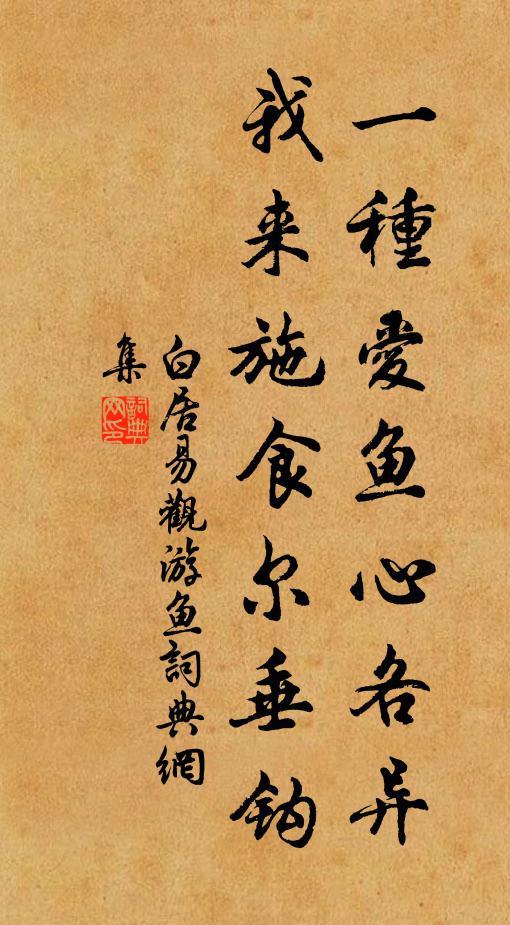 一種愛魚心各异
我来施食尔垂鈎
白居易觀游魚詞典網
集
詞典
网印